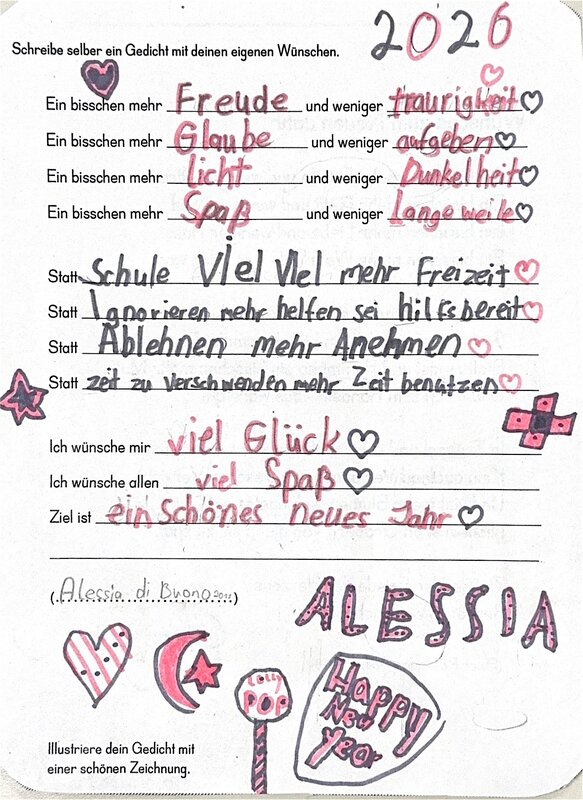 2026
Schreibe selber ein Gedicht mit deinen eigenen Wünschen.
Ein bisschen mehr Freude und weniger traurigkeit
Ein bisschen mehr Glaube und weniger aufgeben
Ein bisschen mehr licht und weniger Dunkelheit
Ein bisschen mehr Spaß und weniger Langeweile
Statt Schule Viel Viel mehr Freizeit
Statt Ignorieren mehr helfen sei hilfsbereit
Statt Ablehnen mehr Anehmen
Statt zeit zu verschwenden mehr Zeit benutzen
Ich wünsche mir viel Glück
Ich wünsche allen viel Spaß
Ziel ist ein Schönes neues Jahr
(Alessia di Buono)
ALESSIA
Lolly
POP
Happy
New
Year
Illustriere dein Gedicht mit
einer schönen Zeichnung.